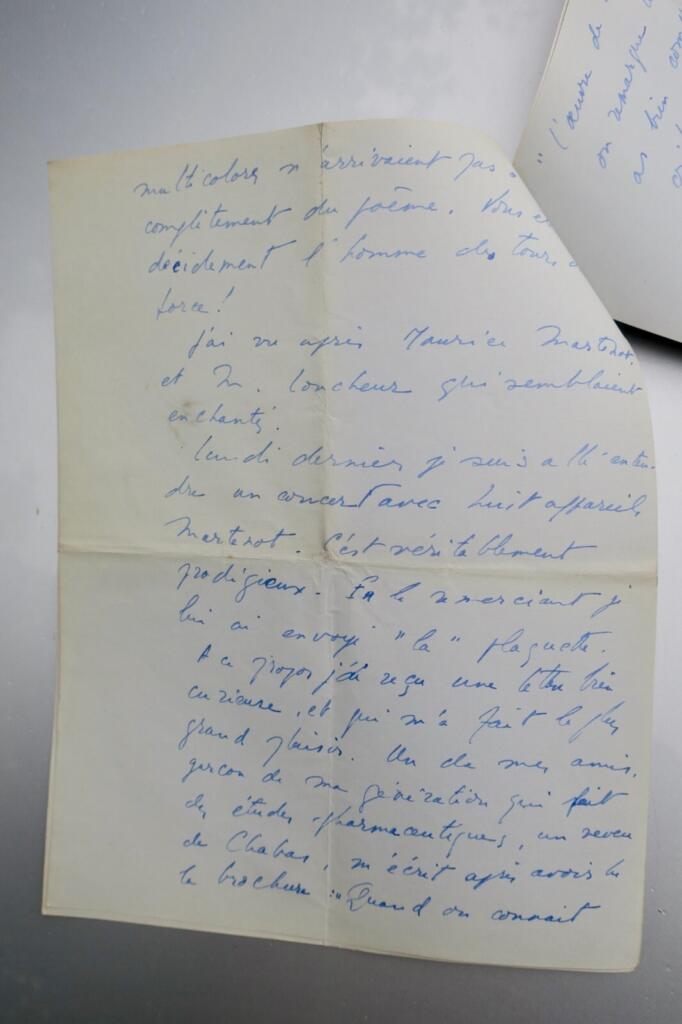 multicolores n'arrivaient pas
complètement du poème. Vous
décidement l'homme des tours
force!
J'ai vu après Maurice Martenot
et M. Loucheur qui semblaient
enchantés.
Lundi dernier j suis allé enten-
dre un concert avec huit appareils
Martenot. C'est véritablement
prodigieux. En le remerciant je
lui ai envoyé "la" plaquette.
A ce propos j'ai reçu une lettre bien
curieuse, et qui m'a fait le plus
grand plaisir. Un de mes amis,
garçon de ma génération qui fait
des études pharmaceutiques, un neveu
de Chabas, m'écrit après avoir lu
la brochure : "Quand on connait
"l'œuvre de
on remarque
as bien